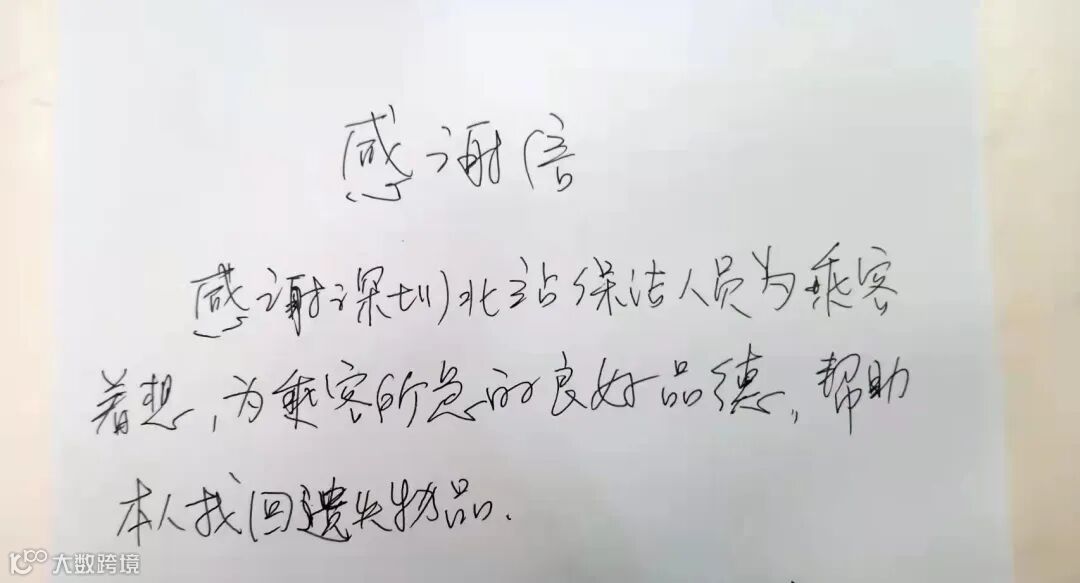 感谢信
感谢深圳北站保洁人员为乘客
着想，为乘客所急的良好品德，帮助
本人找回遗失物品.
大数跨境